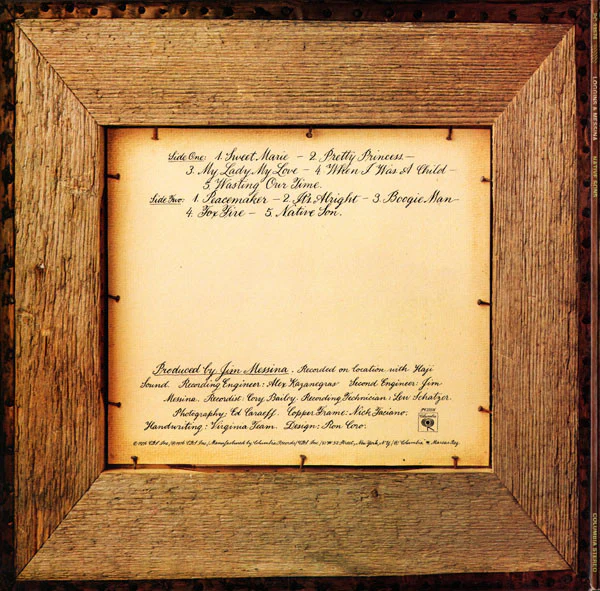 Side One: 1. Sweet Marie – 2. Pretty Princess –
3. My Lady My Love – 4. When I Was A Child –
5. Wasting Our Time.
Side Two: 1. Peacemaker – 2. It's Alright – 3. Boogie Man
4. Fox Fire – 5. Native Son.
Produced by Jim Messina. Recorded on location with Haji
Sound. Recording Engineer: Alex Kazanegras Second Engineer: Jim
Messina. Recordist: Cory Bailey. Recording Technician: Len Schatzer.
Photography: Ed Caraeff. Copper Frame: Nick Faciano.
Handwriting: Virginia Team. Design: Ron Coro.
© 1976 CBS Inc./ ℗ 1976 CBS Inc./Manufactured by Columbia Records/CBS Inc./51 W. 52 Street, New York, N.Y./ "Columbia," Marcas Reg.
Columbia
LOGGINS & MESSINA NATIVE SONS
COLUMBIA STEREO